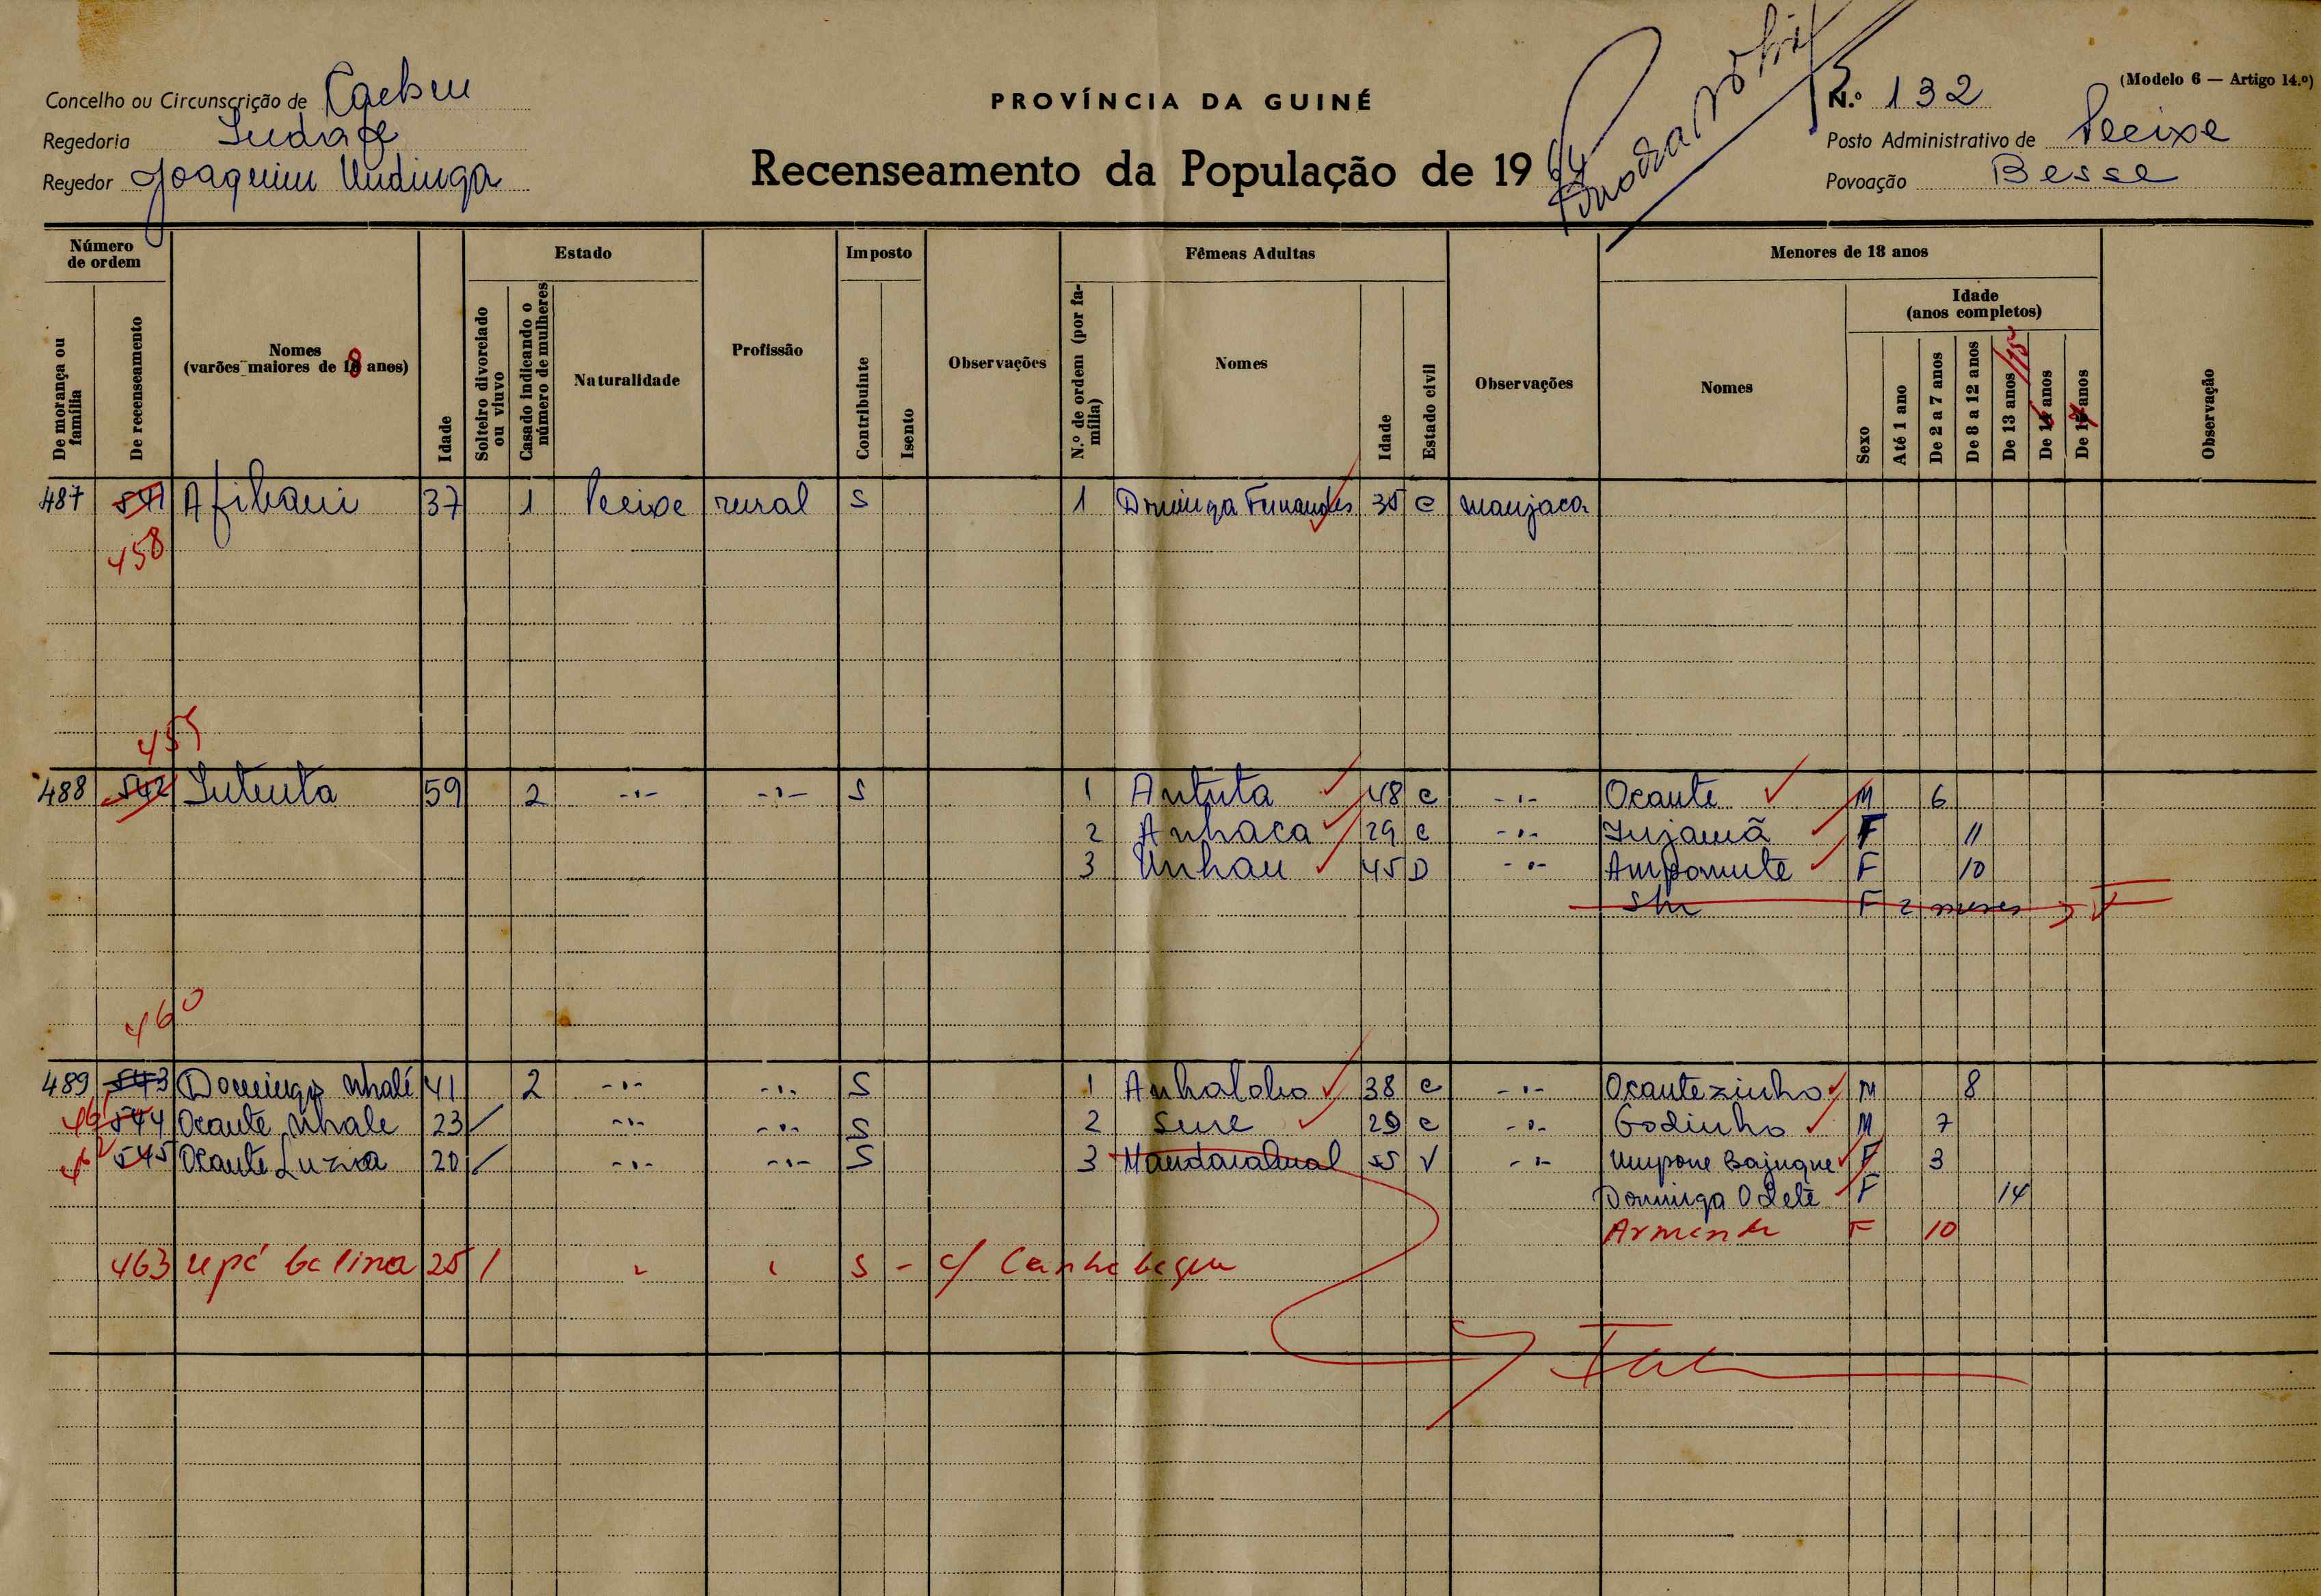 Concelho ou Circunscrição de Cacheu
PROVÍNCIA DA GUINÉ
N.º 132
(Modelo 6 — Artigo 14.º)
Regedoria
Posto Administrativo de Pecixe
Regedor Joaquim Undinga
Recenseamento da População de 1964
Povoação Besse
Número de ordem
De morança ou família
De recenseamento
Nomes (varões maiores de 18 anos)
Idade
Estado
Solteiro divorciado ou viuvo
Casado indicando o número de mulheres
Naturalidade
Profissão
Imposto
Contribuinte
Isento
Observações
Fêmeas Adultas
N.º de ordem (por família)
Nomes
Idade
Estado civil
Observações
Menores de 18 anos
Nomes
Sexo
Idade (anos completos)
Até 1 ano
De 2 a 7 anos
De 8 a 12 anos
De 13 anos /15
De anos
De anos
Observação
487 541 37 1 Pecixe rural S 1 Dominga Fernandes 35 C manjaca
458
459
488 542 Intenta 59 2 -"- -"- S 1 Antuta 48 C -"- Ocante M 6
2 Anhaca 29 C -"- Injamã F 11
3 Unhau 45 D -"- F 10
S/n F 2 meses
460
489 543 Domingos Nhalé 41 2 -"- -"- S 1 38 C -"- Ocantezinho M 8
461 544 Ocante Nhale 23 / -"- -"- S 2 29 C -"- Godinho M 7
462 545 Ocante Luzia 20 / -"- -"- S 3 55 V -"- Umpone Bajuque F 3
Dominga Odete F 14
F 10
463 25 / " " S - c/